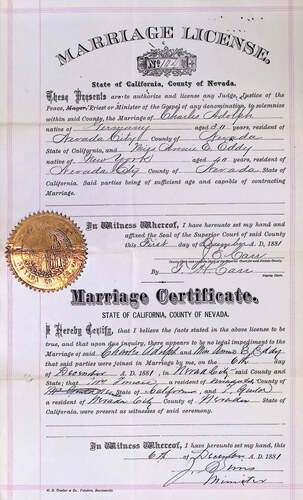 MARRIAGE LICENSE,
No.
State of California, County of Nevada.
These Presents are to authorize and license any Judge, Justice of the
Peace, Mayor, Priest or Minister of the Gospel of any denomination, to solemnize
within said County, the Marriage of Charles Adolph
native of Germany aged resident of
Nevada City County of Nevada
State of California, and Miss Annie E. Eddy
native of New York aged 40 years, resident of
Nevada City County of Nevada, State of
California. Said parties being of sufficient age and capable of contracting
Marriage.
In Witness Whereof, I have hereunto set my hand and
affixed the Seal of the Superior Court of said County
this First day of December A.D. 1881
J. E. Carr
By J. H. Carr
Deputy Clerk.
Marriage Certificate.
STATE OF CALIFORNIA, COUNTY OF NEVADA.
I Hereby Certify, that I believe the facts stated in the above license to
be true, and that upon due inquiry, there appears to be no legal impediment to the
Marriage of said Charles Adolph and Miss Annie E. Eddy
that said parties were joined in Marriage by me, on the 6th day of
December A.D. 1881, in Nevada City said County and
State; that Mrs resident of County of
State of California, and
resident of Nevada City County of Nevada State of
California, were present as witnesses of said ceremony.
In Witness Whereof, I have hereunto set my hand, this
6th of December A.D. 1881
J. Sims
Minister